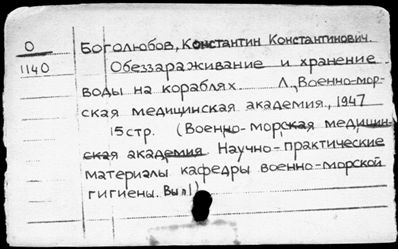 О
1140
Боголюбов, Константин Константинович.
Обеззараживание и хранение
воды на кораблях. Л., Военно-мор-
ская медицинская академия., 1947
15 стр. (Военно-морская медицин-
ская академия. Научно-практические
материалы кафедры военно-морской
гигиены. Вып 1)